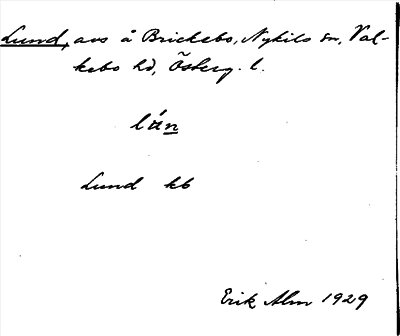 Lund, avs å Brickebo, Nykils sn, Val-
kebo hd, Österg. l.
lán
Lund kb
Erik Alm 1929